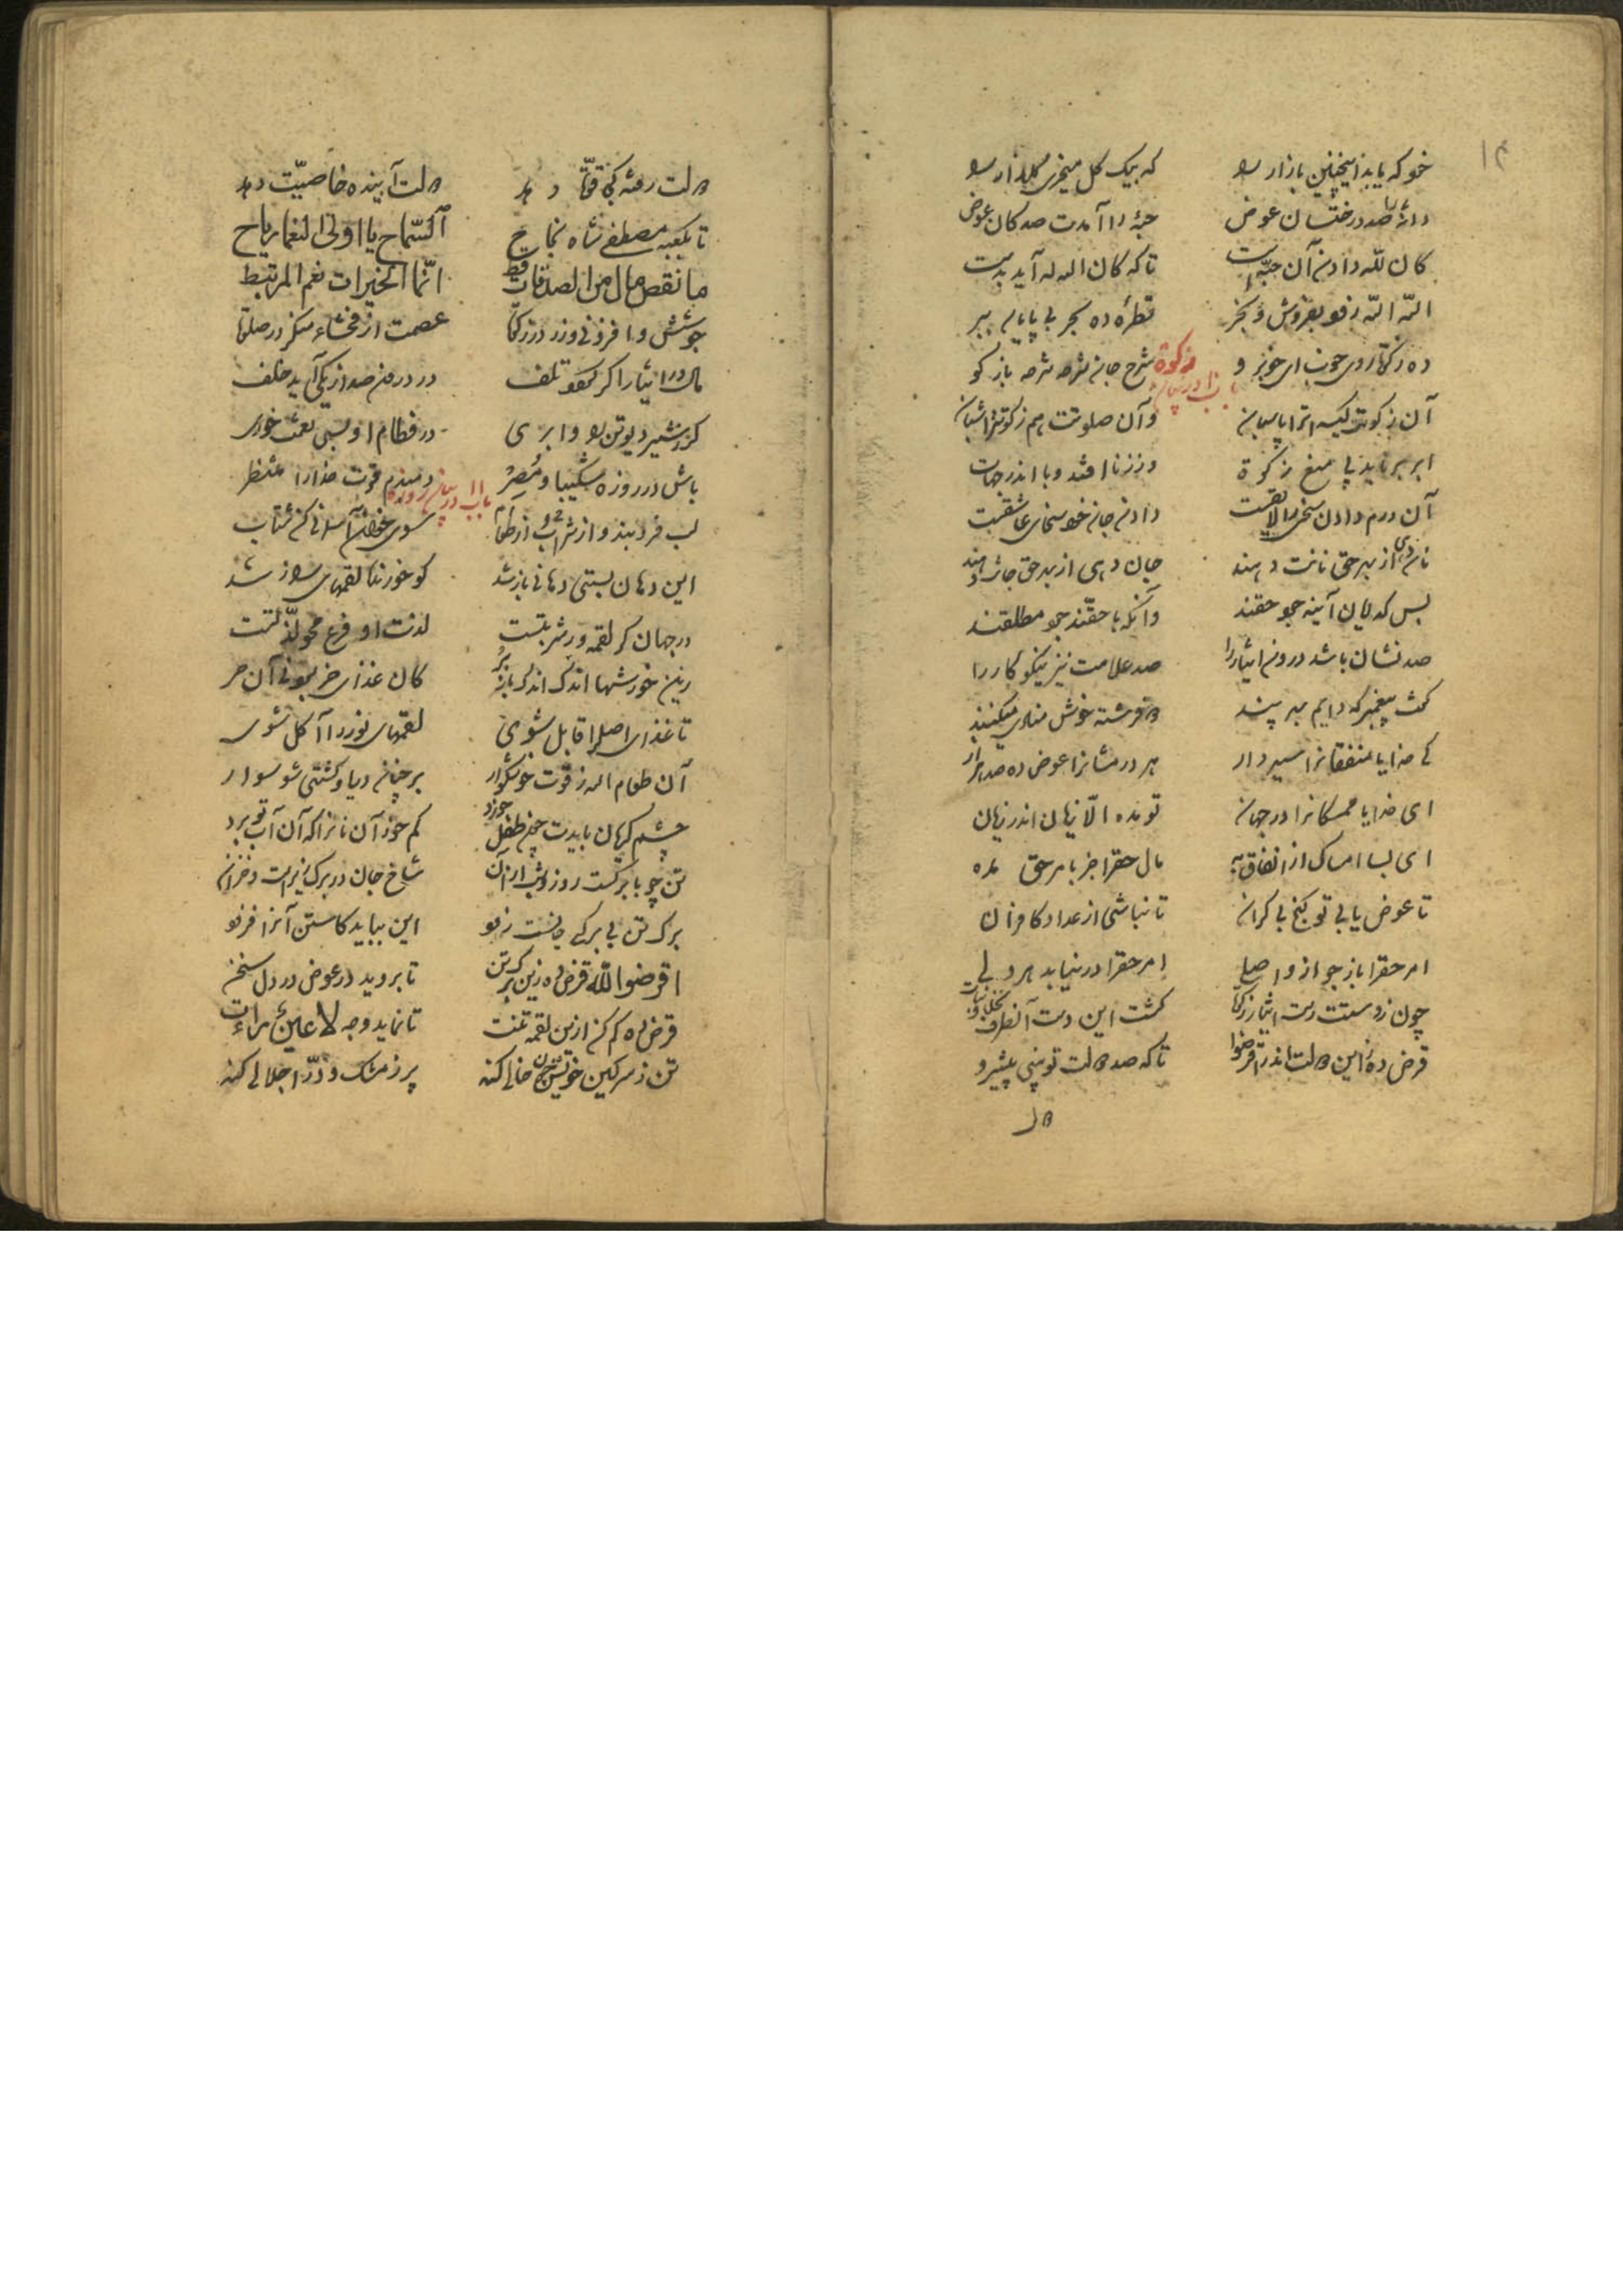 خود که یابد اینچنین بازار را که بیک گل میخری گلزار را
دانهٔ را صد درختستان عوض حبهٔ را آمدت صد کان عوض
کان لله دادن آن حبه است تا که کان الله له آید بدست
الله الله زود بفروش و بخر قطرهٔ ده بحر بی پایان ببر
ده زکوة روی خوب ای خوبرو شرح جان شرحه شرحه بازگو
باب در بیان زکوة
آن زکوتت کیسه ات را پاسبان وآن صلوتت هم ز گرگانت شبان
ابر برناید پی منع زکوة وز زنا افتد وبا اندر جهات
آن درم دادن سخی را لایقست دادن جان خود سخای عاشقست
نان دهی از بهر حق نانت دهند جان دهی از بهر حق جانت دهند
بس کدیان آینه جود حقند وآنکه با حقند جود مطلقند
صد نشان باشد درون ایثار را صد علامت نیز نیکوکار را
گفت پیغمبر که دایم بهر پند دو فرشته خوش منادی میکنند
کای خدایا منفقانرا سیر دار هر درمشانرا عوض ده صد هزار
ای خدایا ممسکانرا در جهان تو مده الا زیان اندر زیان
ای بسا امساک از انفاق به مال حقرا جز بامر حق مده
تا عوض یابی تو گنج بی کران تا نباشی از عداد کافران
امر حقرا باز جو از واصلی امر حقرا در نیابد هر دلی
چون ز دستت رست ایثار زکوة گشت این دست آنطرف نخل و نبات
قرض ده زین دولت اندر اقرضوا تا که صد دولت تو بینی پیش رو
دولت
دولت رفته کجا قوت دهد دولت آینده خاصیت دهد
تا بگفته مصطفی شاه نجاح السماح یا اولی النعما رباح
ما نقص مال من الصدقات قط انما الخیرات نعم المرتبط
جوشش و افزونی زر در زکوة عصمت از فحشاء و منکر در صلوة
مال در ایثار اگر گردد تلف در درون صد زندگی آید خلف
گر ز شیر دیو تن را وا بری در فطام او بسی نعمت خوری
باش در روزه شکیبا و مصر دمبدم قوت خدا را منتظر
باب ۱۱ در بیان روزه
لب فروبند و از شراب و از طعام سوی خوان آسمانی کن شتاب
این دهان بستی دهانی باز شد کو خورنده لقمهای راز شد
در جهان گر لقمه ور شربتست لذت او فرع محو لذتست
زین خورشها اندک اندک باز بر کان غذای خر بود نی آن حر
تا غذای اصل را قابل شوی لقمهای نور را آکل شوی
آن طعام الله ز قوت خوشگوار بر چنان دریا و کشتی شو سوار
چشم گریان بایدت چون طفل خورد کم خور آن نانرا که آن آب تو برد
تن چو با برگست روز و شب از آن شاخ جان در برگ ریزست و خزان
برگ تن بی برگی جانست زود این بباید کاستن آنرا فزود
اقرضوا الله قرض ده زین برگ تن تا بروید در عوض در دل سخن
قرض ده کم کن ازین لقمه تنت تا نماید وجه لا عین رأت
تن ز سرگین خویش چون خالی کند پر ز مشک و در اجلالی کند